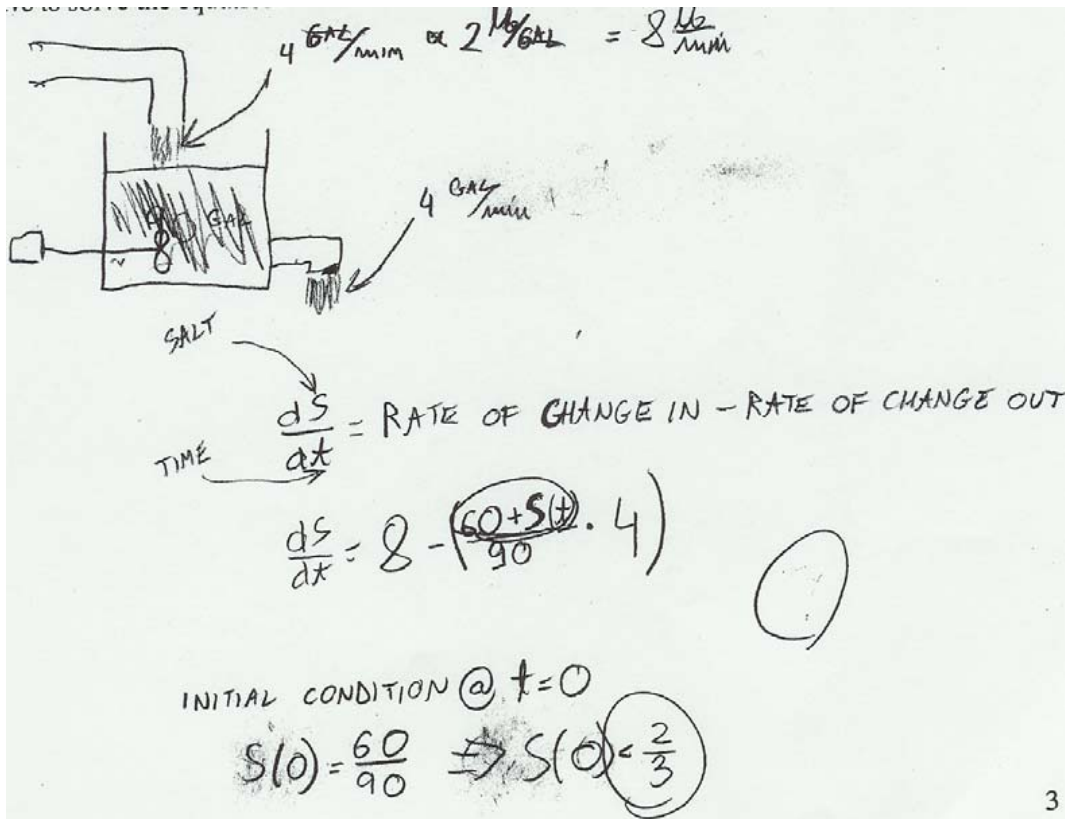 to solve the
4 GAL/min 2 lb/GAL = 8 lb/min
90 GAL
4 GAL/min
SALT
dS/dt = RATE OF CHANGE IN - RATE OF CHANGE OUT
TIME
dS/dt = 8 - (60+S(t)/90 · 4)
INITIAL CONDITION @ t=0
S(0) = 60/90 => S(0) = 2/3
3